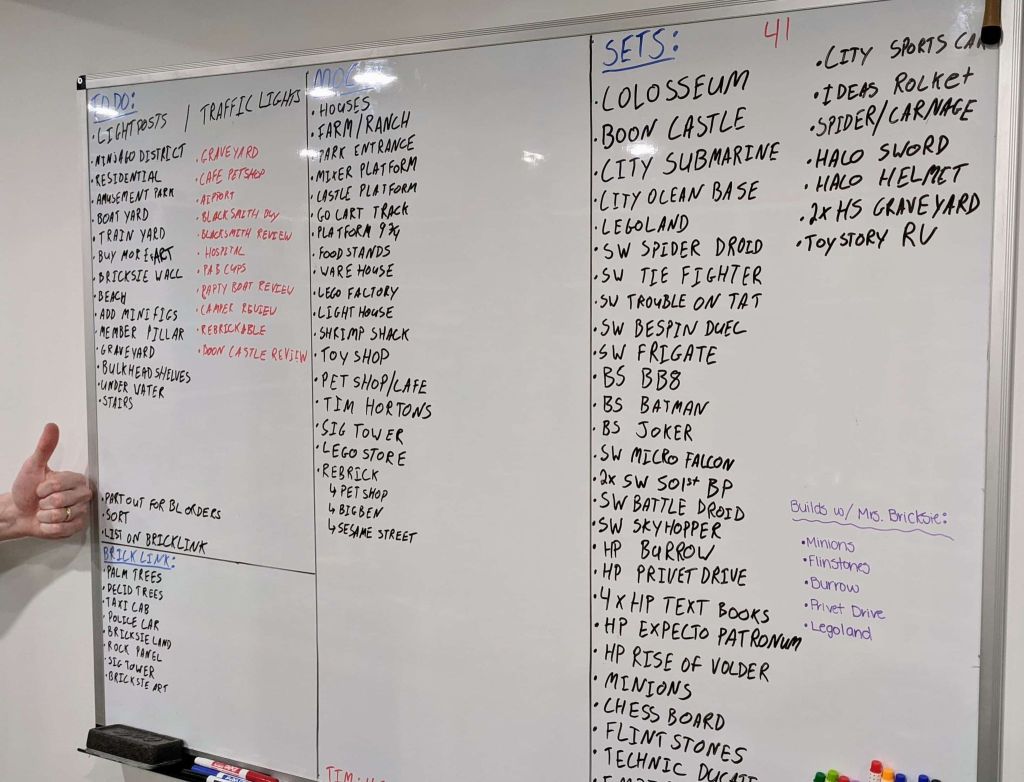 TO DO:
• LIGHTPOSTS / TRAFFIC LIGHTS
• NINJAGO DISTRICT
• RESIDENTIAL
• AMUSEMENT PARK
• BOAT YARD
• TRAIN YARD
• BUY MORE ART
• BRICKSIE WALL
• BEACH
• ADD MINIFIGS
• MEMBER PILLAR
• GRAVEYARD
• BULKHEAD SHELVES
• UNDER WATER
• STAIRS
• GRAVEYARD
• CAFE PETSHOP
• AIRPORT
• BLACKSMITH BUY
• BLACKSMITH REVIEW
• HOSPITAL
• PAB CUPS
• PARTY BOAT REVIEW
• CAMPER REVIEW
• REBRICKABLE
• DOON CASTLE REVIEW
• PART OUT FOR BL ORDERS
• SORT
• LIST ON BRICKLINK
BRICK LINK:
• PALM TREES
• DECID TREES
• TAXI CAB
• POLICE CAR
• BRICKSIE LAND
• ROCK PANEL
• SIG TOWER
• BRICKSIE ART
MOC
• HOUSES
• FARM/RANCH
• PARK ENTRANCE
• MIXER PLATFORM
• CASTLE PLATFORM
• GO CART TRACK
• PLATFORM 9¾
• FOOD STANDS
• WARE HOUSE
• LEGO FACTORY
• LIGHT HOUSE
• SHRIMP SHACK
• TOY SHOP
• PET SHOP/CAFE
• TIM HORTONS
• SIG TOWER
• LEGO STORE
• REBRICK
↳ PET SHOP
↳ BIG BEN
↳ SESAME STREET
SETS:
41
• COLOSSEUM
• BOON CASTLE
• CITY SUBMARINE
• CITY OCEAN BASE
• LEGOLAND
• SW SPIDER DROID
• SW TIE FIGHTER
• SW TROUBLE ON TAT
• SW BESPIN DUEL
• SW FRIGATE
• BS BB8
• BS BATMAN
• BS JOKER
• SW MICRO FALCON
• 2x SW 501st BP
• SW BATTLE DROID
• SW SKYHOPPER
• HP BURROW
• HP PRIVET DRIVE
• 4x HP TEXT BOOKS
• HP EXPECTO PATRONUM
• HP RISE OF VOLDER
• MINIONS
• CHESS BOARD
• FLINTSTONES
• TECHNIC DUCATI
• CITY SPORTS CAR
• IDEAS ROCKET
• SPIDER/CARNAGE
• HALO SWORD
• HALO HELMET
• 2x HS GRAVEYARD
• TOY STORY RV
Builds w/ Mrs. Bricksie:
• Minions
• Flinstones
• Burrow
• Privet Drive
• Legoland